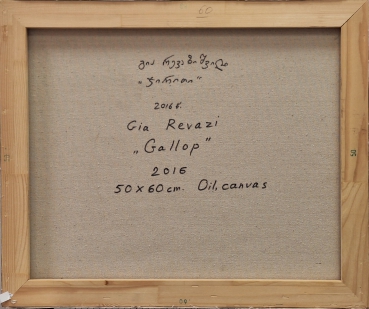 60
გია რევაზიშვილი
„ჯირითი"
2016 წ.
Gia Revazi
„Gallop"
2016
50 x 60 cm. Oil, canvas
50
60